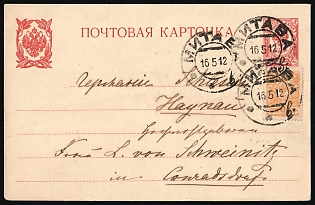 ПОЧТОВАЯ КАРТОЧКА
МИТАВА
16 5 12
МИТАВА
16 5 12
Германія
Haynau
Frau L. von Schweinitz
in Conradsdorf